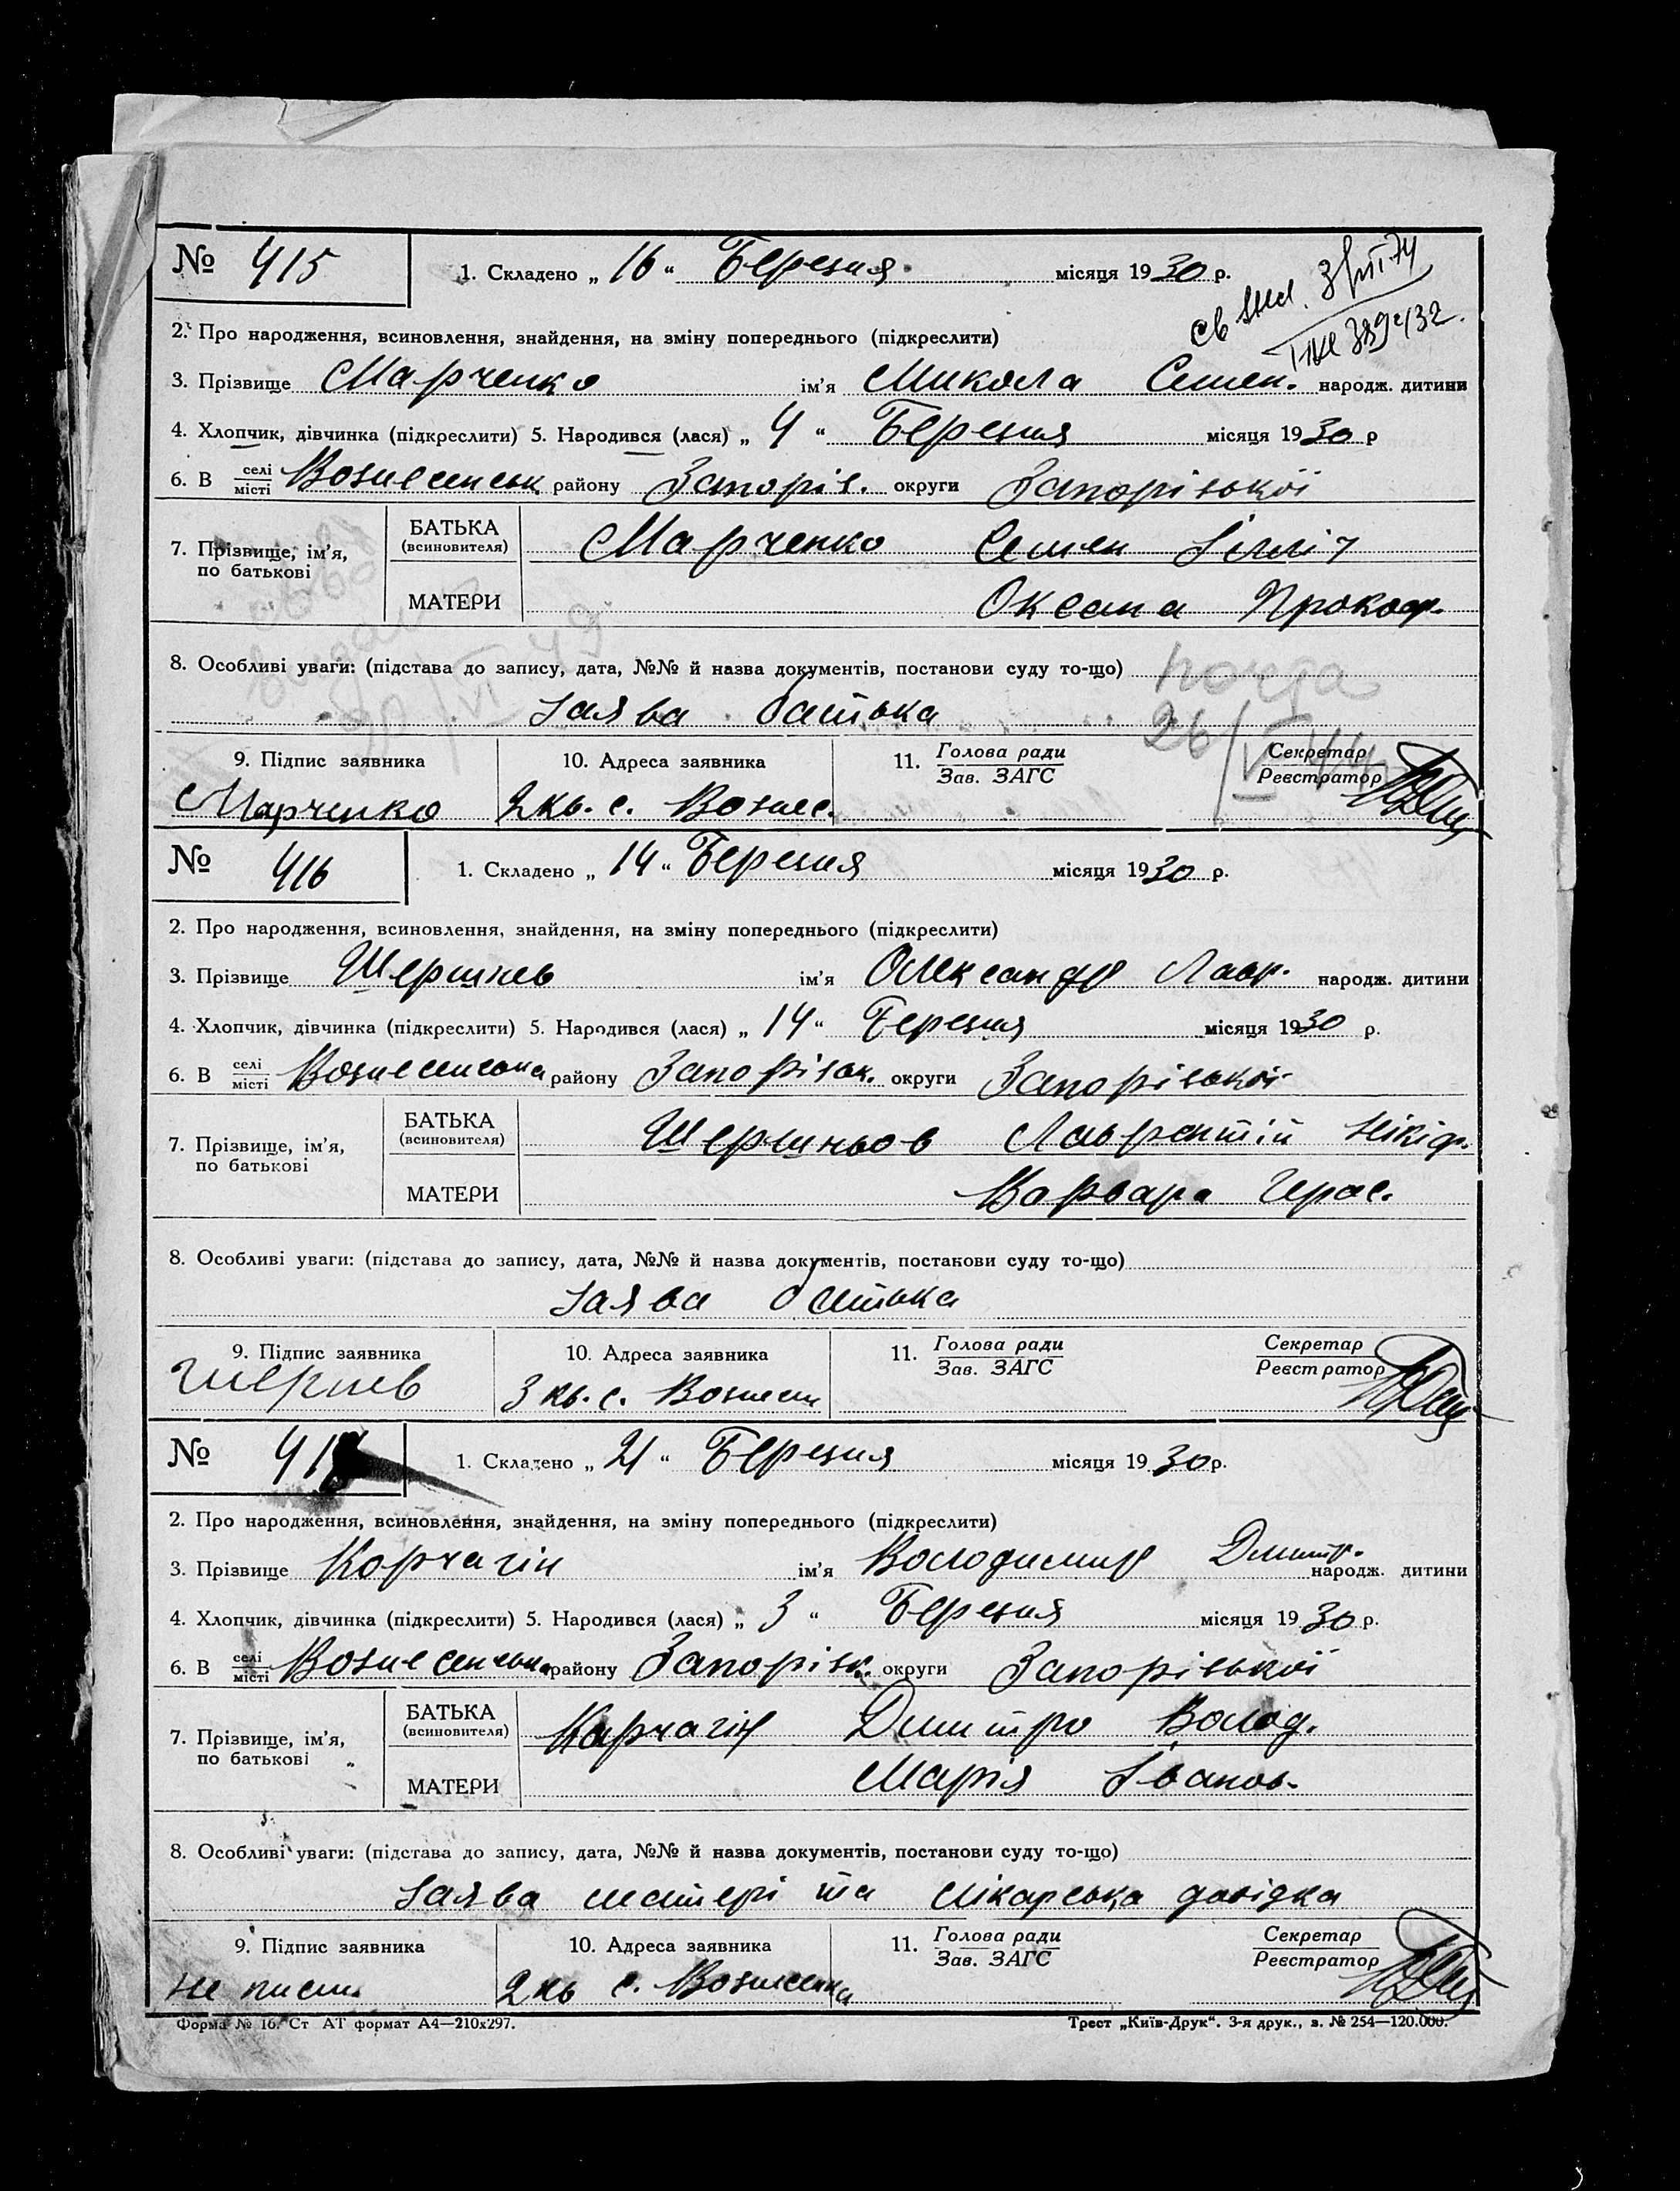 № 415 1. Складено „ 16 “ Березня місяця 1930 р.
2. Про народження, всиновлення, знайдення, на зміну попереднього (підкреслити)
3. Прізвище Марченко ім’я Микола Семен. народж. дитини
4. Хлопчик, дівчинка (підкреслити) 5. Народився (лася) „ 4 “ Березня місяця 1930 р
6. В селі місті Вознесенськ району Запоріз. округи Запорізької
7. Прізвище, ім’я, по батькові БАТЬКА (всиновителя) Марченко Семен Ілліч
МАТЕРИ Оксана Прокоф.
8. Особливі уваги: (підстава до запису, дата, №№ й назва документів, постанови суду то-що)
Заява батька
9. Підпис заявника 10. Адреса заявника 11. Голова ради Зав. ЗАГС Секретар Реєстратор
Марченко 2 кв. с. Вознес.
№ 416 1. Складено „ 14 “ Березня місяця 1930 р.
2. Про народження, всиновлення, знайдення, на зміну попереднього (підкреслити)
3. Прізвище Шершнев ім’я Олександр Лавр. народж. дитини
4. Хлопчик, дівчинка (підкреслити) 5. Народився (лася) „ 14 “ Березня місяця 1930 р.
6. В селі місті Вознесенська району Запорізьк. округи Запорізької
7. Прізвище, ім’я, по батькові БАТЬКА (всиновителя) Шершньов Лаврентій Нікіф.
МАТЕРИ Варвара Герас.
8. Особливі уваги: (підстава до запису, дата, №№ й назва документів, постакови суду то-що)
Заява батька
9. Підпис заявника 10. Адреса заявника 11. Голова ради Зав. ЗАГС Секретар Реєстратор
3 кв. с. Вознесен
№ 417 1. Складено „ 21 “ Березня місяця 1930 р.
2. Про народження, всиновлення, знайдення, на зміну попереднього (підкреслити)
3. Прізвище Корчагін ім’я Володимир Дмитр. народж. дитини
4. Хлопчик, дівчинка (підкреслити) 5. Народився (лася) „ 3 “ Березня місяця 1930 р.
6. В селі місті Вознесенська району Запорізк. округи Запорізької
7. Прізвище, ім’я, по батькові БАТЬКА (всиновителя) Карчагін Дмитро Волод.
МАТЕРИ Марія Іванов.
8. Особливі уваги: (підстава до запису, дата, №№ й назва документів, постанови суду то-що)
Заява матері та лікарська довідка
9. Підпис заявника 10. Адреса заявника 11. Голова ради Зав. ЗАГС Секретар Реєстратор
не письм. 2 кв с. Вознесенка
Форма № 16. Ст АТ формат А4—210х297. Трест „Київ-Друк“. 3-я друк., з. № 254—120.000.